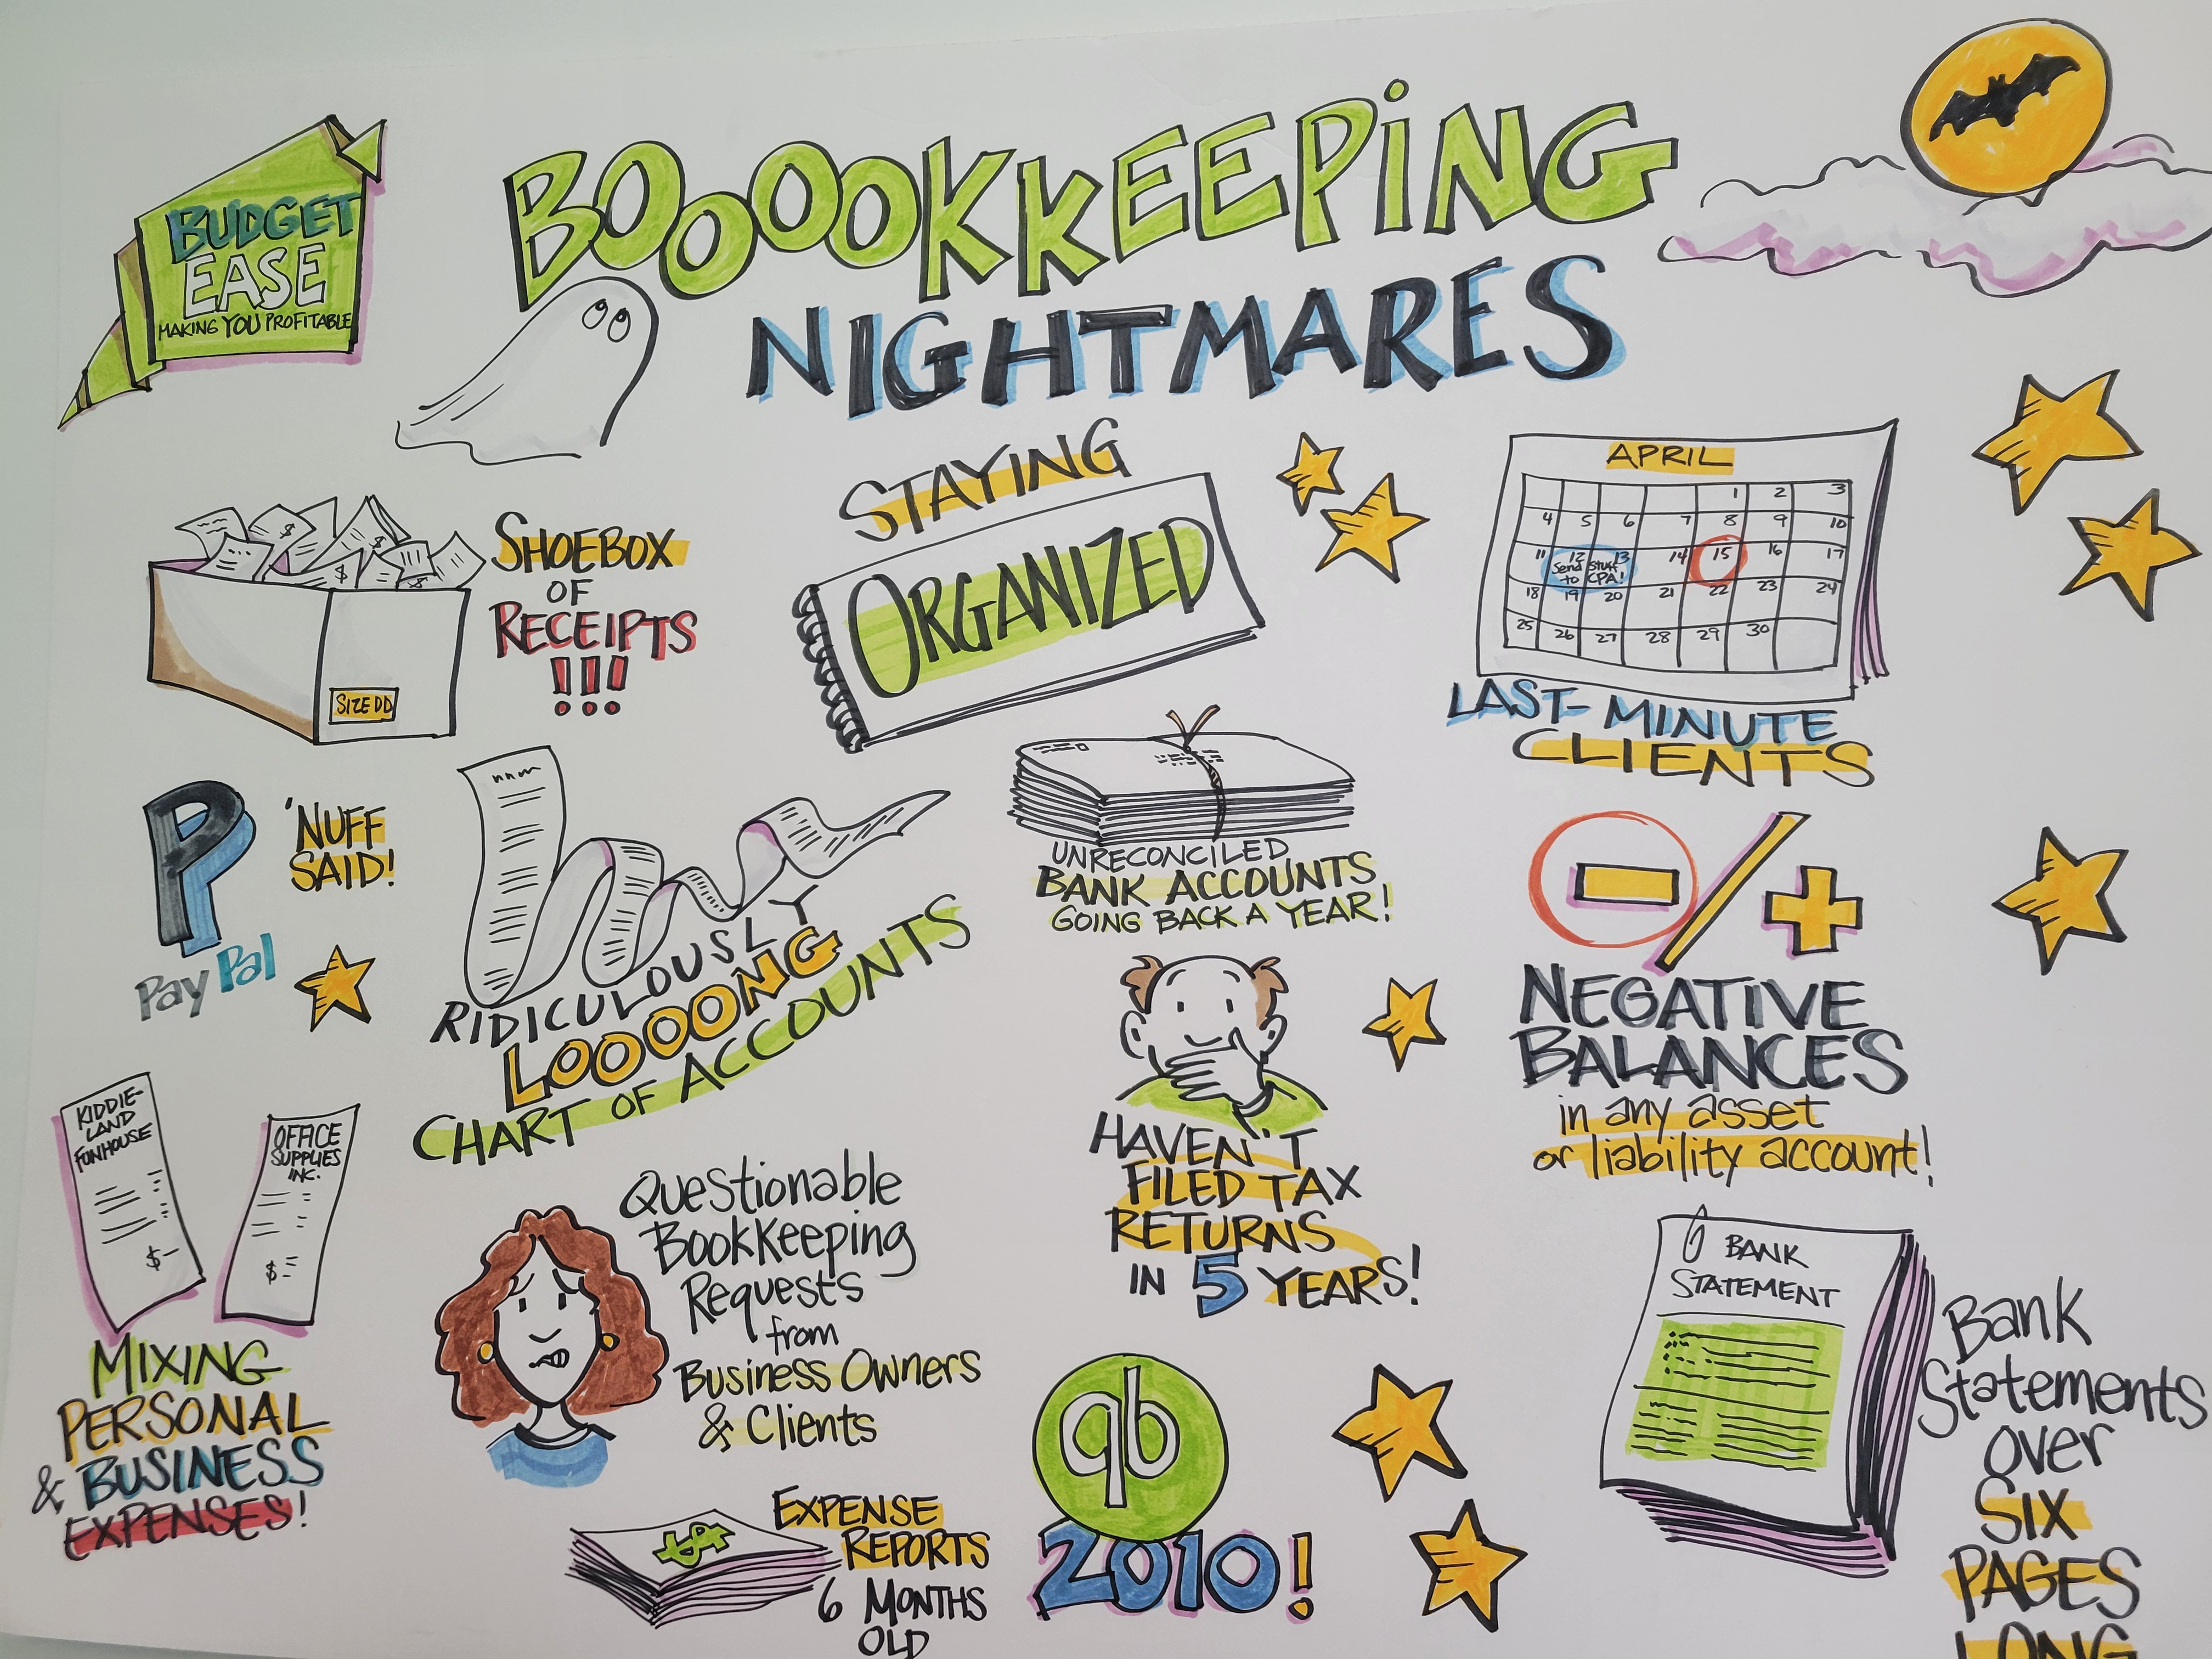 BUDGET
EASE
MAKING YOU PROFITABLE
BOOOOKKEEPiNG
NIGHTMARES
SHOEBOX
OF
RECEIPTS
!!!
SIZE DD
STAYING
ORGANIZED
APRIL
1 2 3
4 5 6 7 8 9 10
11 12 13 14 15 16 17
Send Stuff
to CPA!
18 19 20 21 22 23 24
25 26 27 28 29 30
LAST-MINUTE
CLIENTS
P
PayPal
'NUFF
SAID!
RIDICULOUSLY
LOOOONG
CHART OF ACCOUNTS
UNRECONCILED
BANK ACCOUNTS
GOING BACK A YEAR!
- / +
NEGATIVE
BALANCES
in any asset
or liability account!
KIDDIE-
LAND
FUNHOUSE
$-
OFFICE
SUPPLIES
INC.
$
MIXING
PERSONAL
& BUSINESS
EXPENSES!
Questionable
Bookkeeping
Requests
from
Business Owners
& Clients
HAVEN'T
FILED TAX
RETURNS
IN 5 YEARS!
$
EXPENSE
REPORTS
6 MONTHS
OLD
qb
2010!
BANK
STATEMENT
Bank
Statements
over
SIX
PAGES
LONG